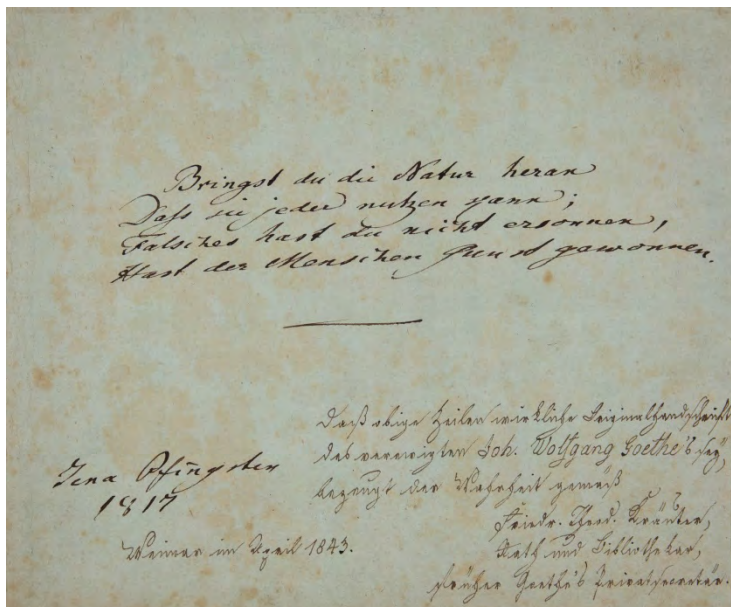 Bringst du die Natur heran
Dass sie jeder nutzen kann;
Falsches hast du nicht ersonnen,
Hast der Menschen Gunst gewonnen.
Jena Pfingsten
1817
Daß obige Zeilen wirkliche Originalhandschrift
des verewigten Joh. Wolfgang Goethe's sey,
bezeugt der Wahrheit gemäß
Friedr. Theod. Kräuter,
Rath und Bibliothekar,
früher Goethe's Privatsecretär.
Weimar im April 1843.